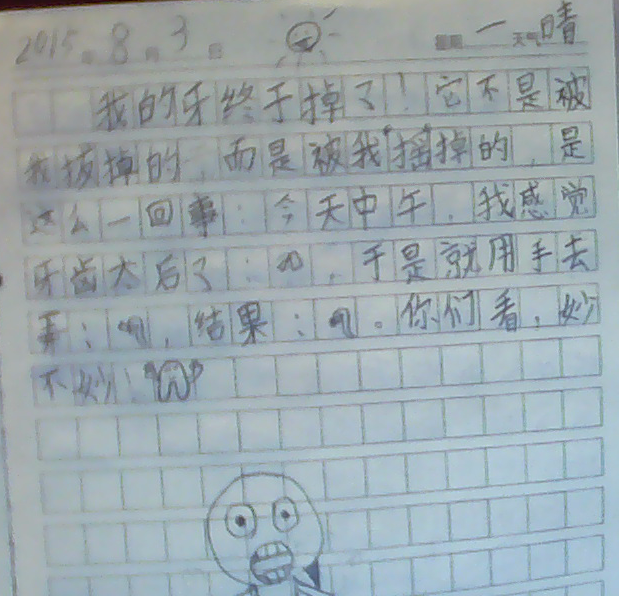 2015年8月3日 星期一 天气晴
我的牙终于掉了！它不是被
我拔掉的，而是被我“摇”掉的，是
这么一回事：今天中午，我感觉
牙齿太后了：，于是就用手去
弄：，结果：。你们看，妙
不妙！